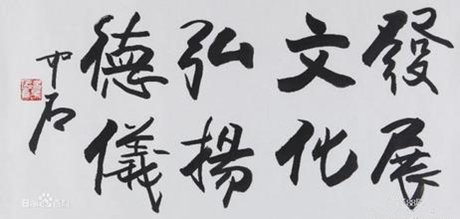 發展
文化
弘揚
德儀
如石
Bai百科